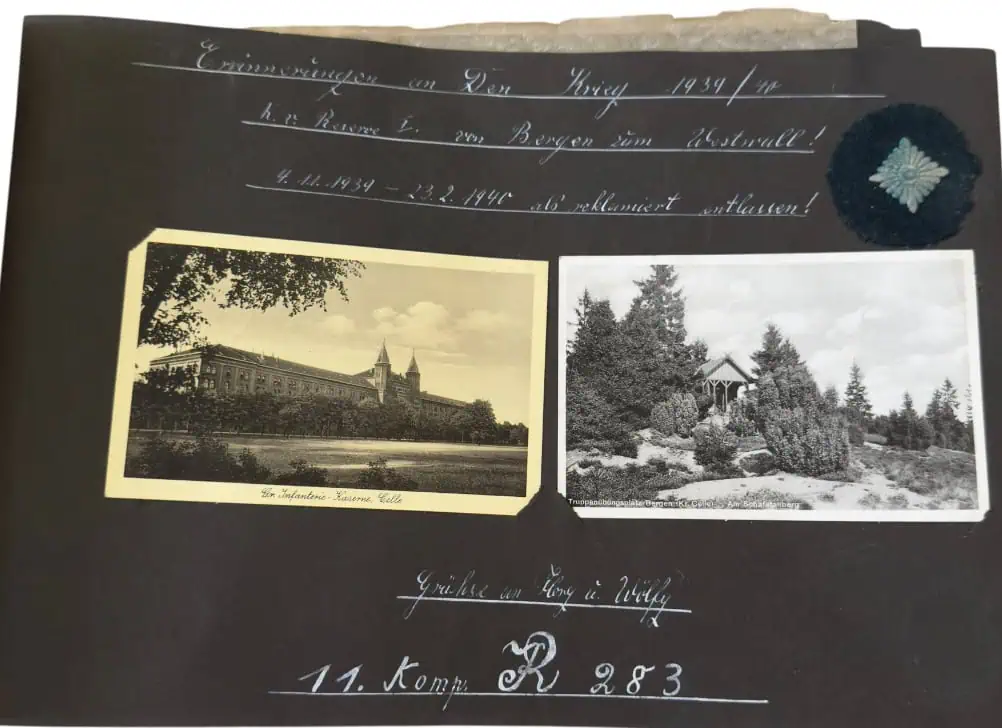 Erinnerungen an Den Krieg 1939/40
h. v. Reserve I. von Bergen zum Westwall!
4.11.1939 – 23.2.1940 als reklamiert entlassen!
Gr. Infanterie-Kaserne, Celle
Truppenübungsplatz Bergen (Kr. Celle) - Am Schafstallberg
Grüße an u. Wölfy
11. Komp. R 283